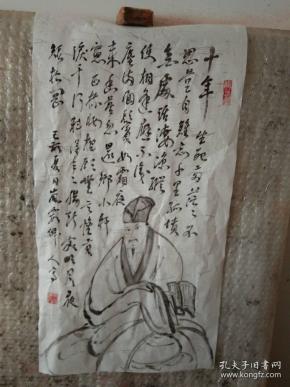 十年
生死两茫茫不
思量自难忘千里孤坟
无处话凄凉纵
使相逢应不识
尘满面鬓如霜夜
来幽梦忽还乡小轩
窗正梳妆相顾无言惟有
泪千行料得年年肠断处明月夜
短松冈 夏日
孔夫子旧书网